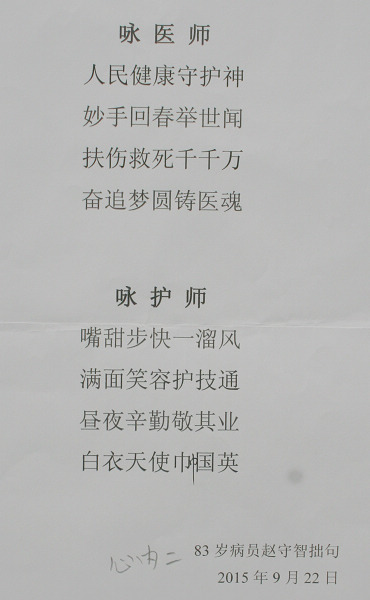 咏医师
人民健康守护神
妙手回春举世闻
扶伤救死千千万
奋追梦圆铸医魂
咏护师
嘴甜步快一溜风
满面笑容护技通
昼夜辛勤敬其业
白衣天使巾国英
心内二
83岁病员赵守智拙句
2015年9月22日